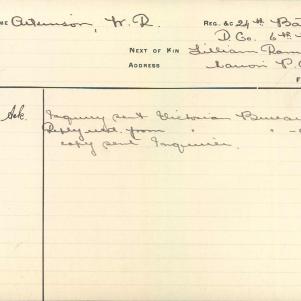 ME Atkinson, W. R. REG. &C 24th Ba
D Co. 6th
NEXT OF KIN Lillian
ADDRESS P.
F
Ack. Inquiry sent Victorian Bureau
Reply recd. from " " -
copy sent Inquirer.